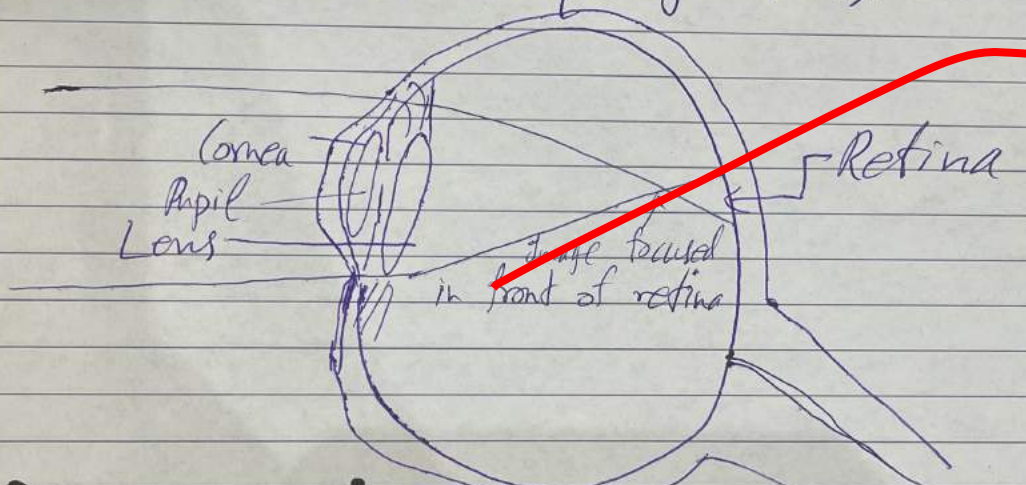 Cornea
Pupil
Lens
Retina
Image focused
in front of retina